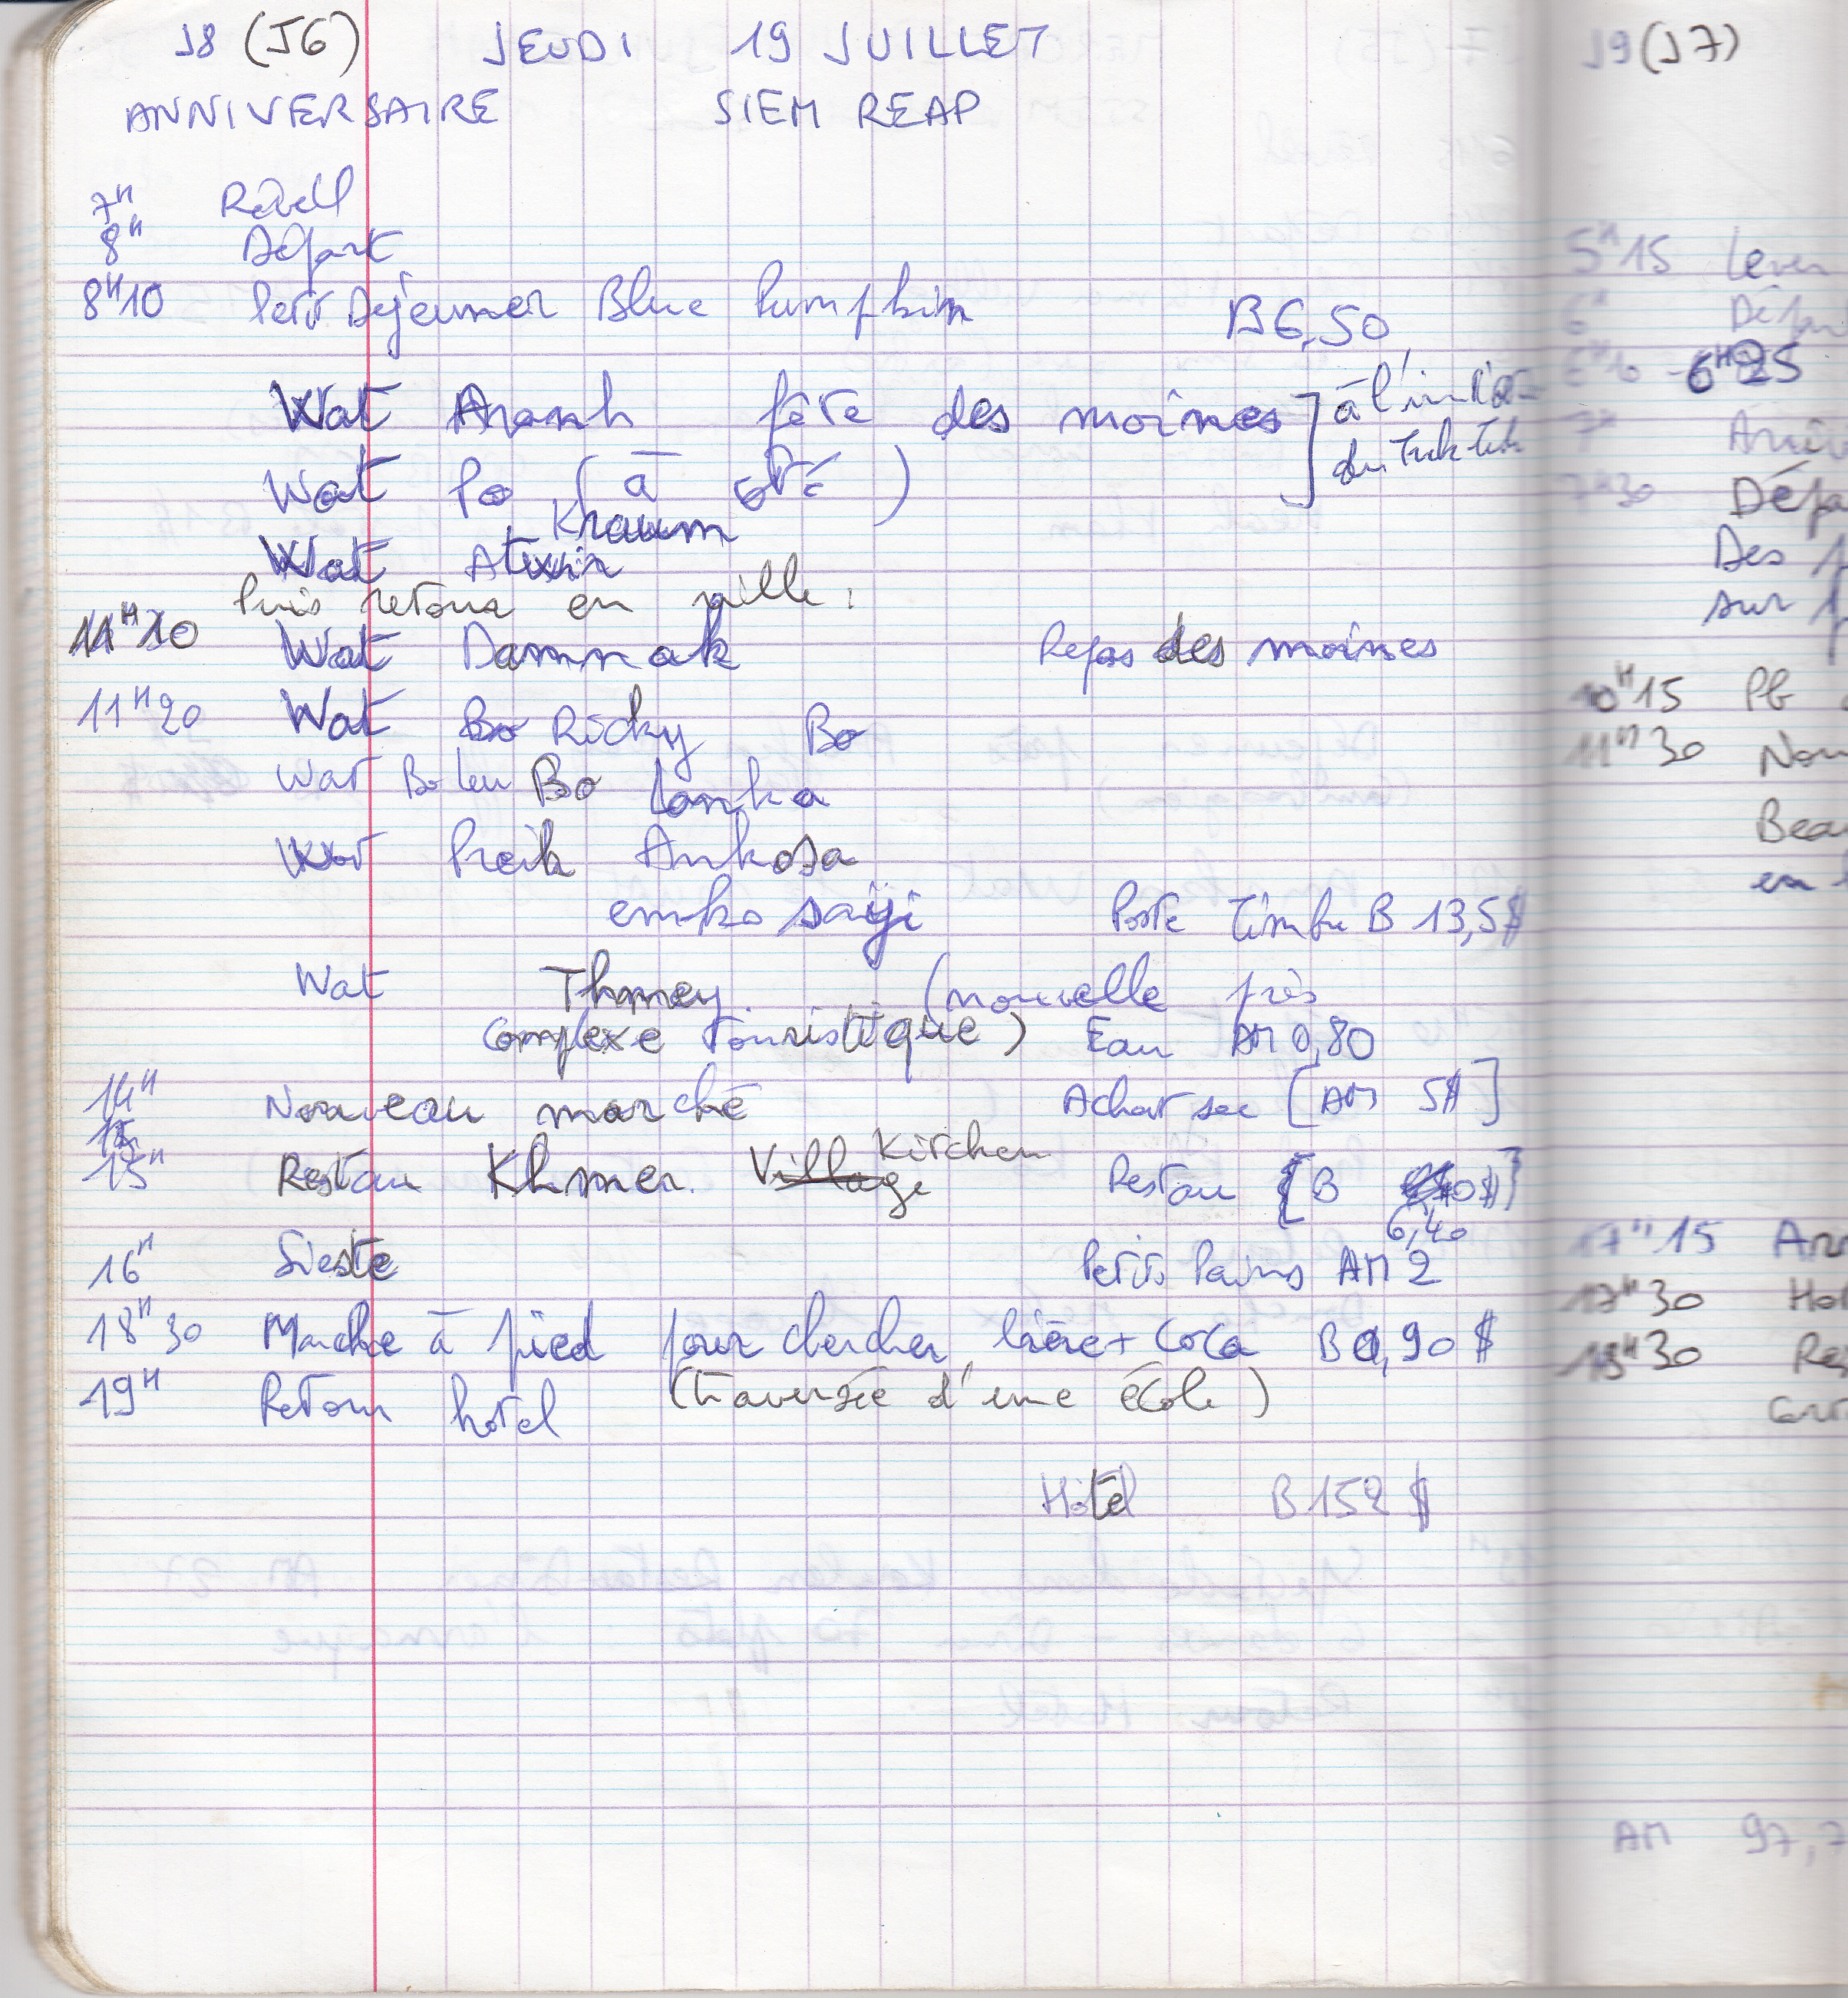 J8 (J6) JEUDI 19 JUILLET
ANNIVERSAIRE SIEM REAP
7H Réveil
8H Départ
8H10 Petit Dejeuner Blue Pumpkin B 6,50
Wat Aranh fête des moines ] à l'init
Wat Po (à côté) du Tuk tuk
Kraum
Wat Atwir
Puis retour en ville :
11H10 Wat Damnak Repas des moines
11H20 Wat Bo Ricky Bo
Wat Bo Leu Bo Lanka
Wat Preik Ankosa
emko saiji Poste timbre B 13,5$
Wat Thmey (nouvelle près
complexe touristique) Eau AM 0,80
14H Nouveau marché Achat sac [AM 5$]
15H Restau Khmer Village Kitchen Restau [B $]
6,40
16H Sieste Petits Pains AM 2
18H30 Marche à pied pour chercher bière + Coca B 0,90 $
19H Retour hotel (traversée d'une école)
Hôtel B 152 $
J9 (J7)
5H15 Lever
6H Dépa
6H10 - 6H25
7H Arriv
7H30 Dépa
Des
sur
10H15 Pb
11H30 Nou
Beau
en
17H15 Arr
17H30 Hot
18H30 Res
AM 97,7